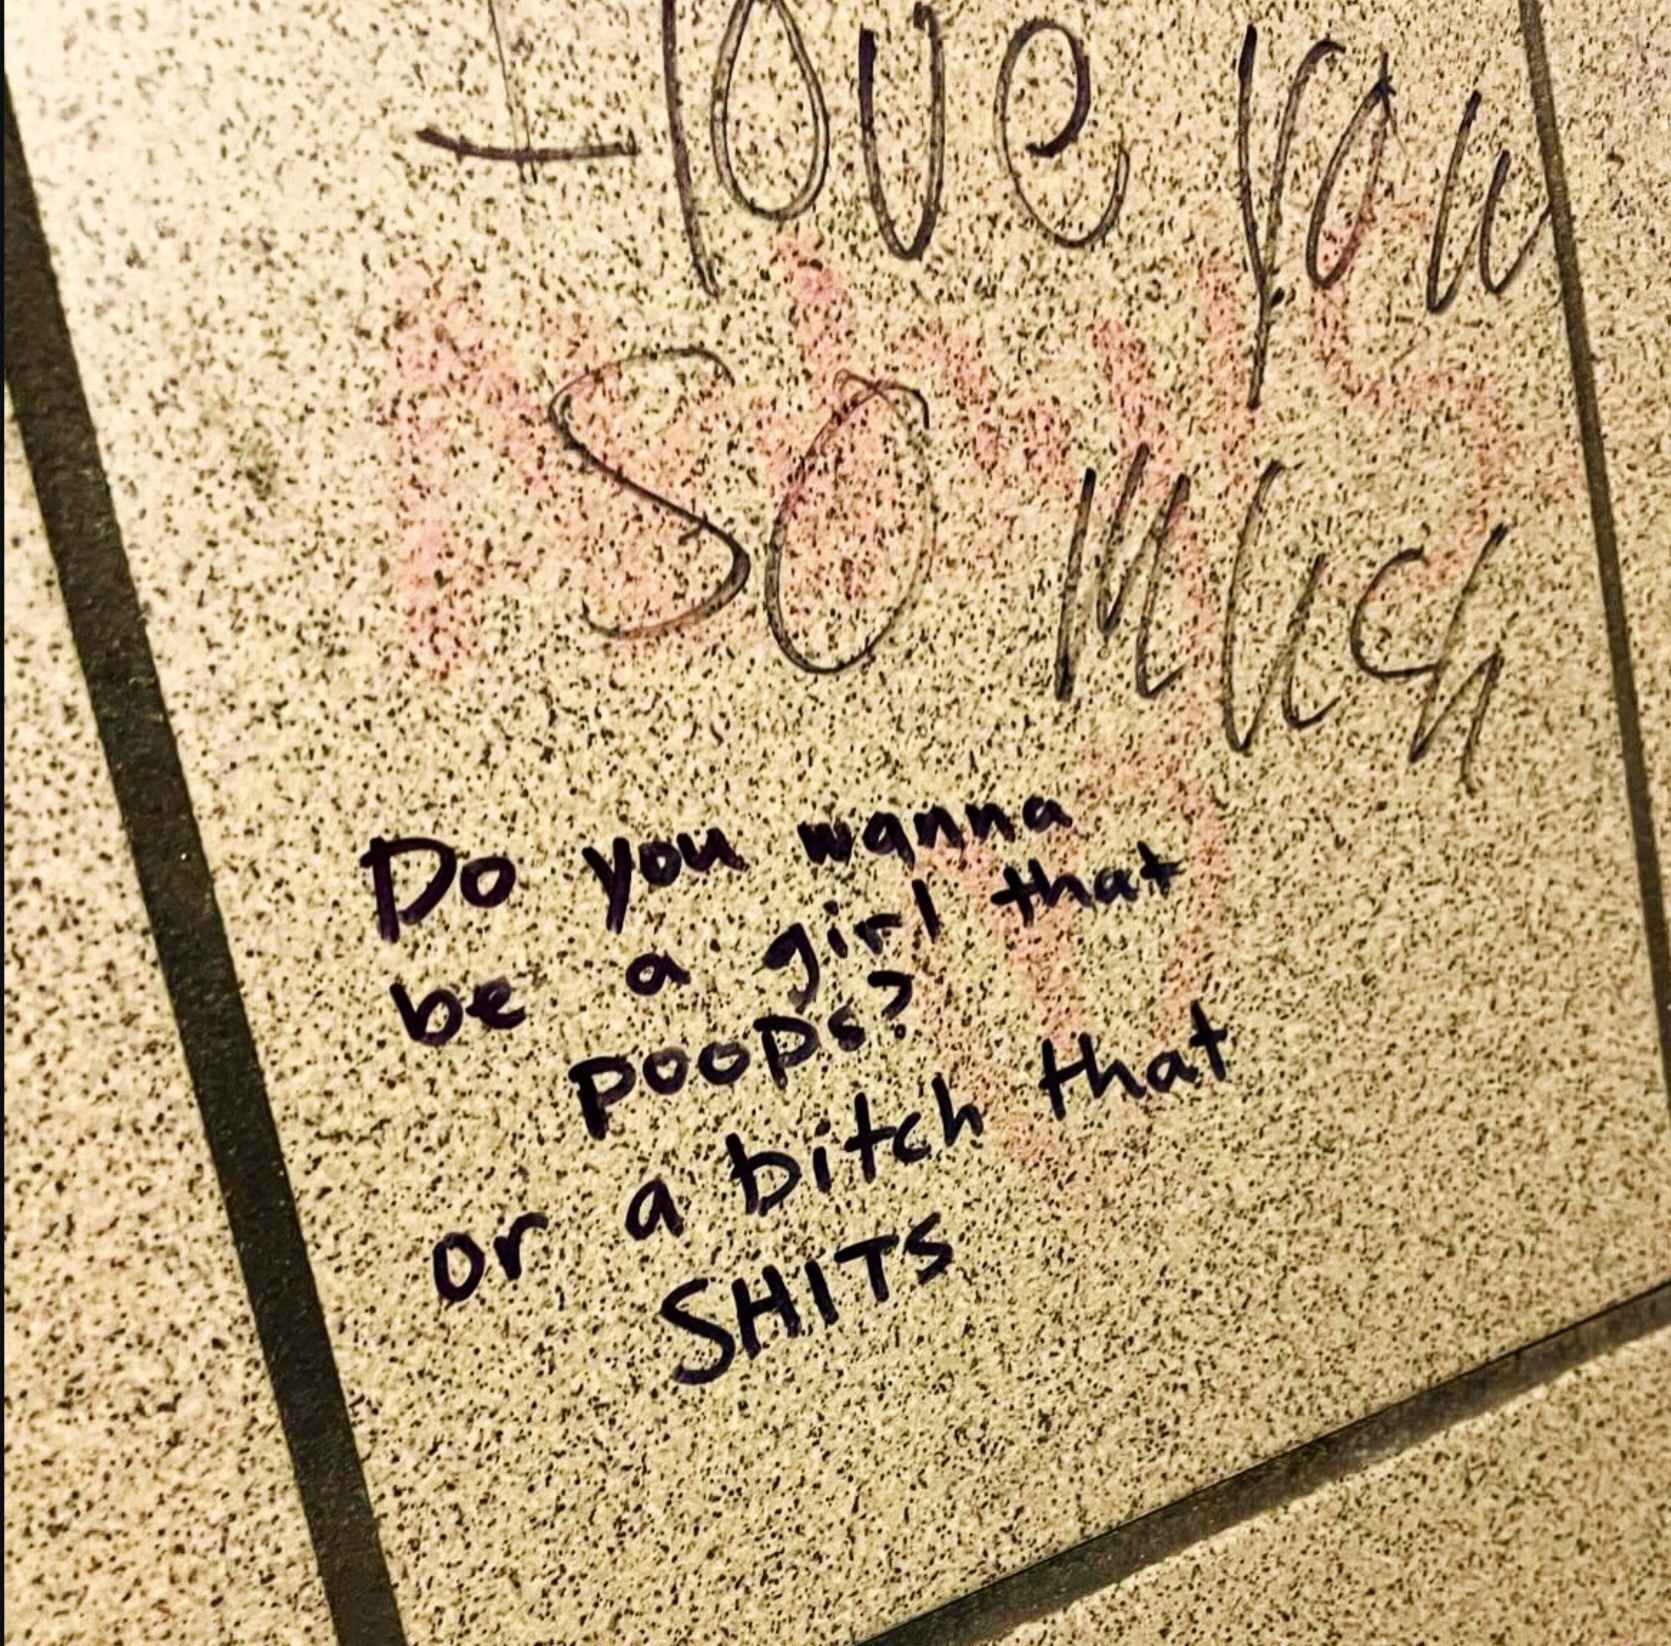 I love you
so much
Do you wanna
be a girl that
poops?
or a bitch that
SHITS